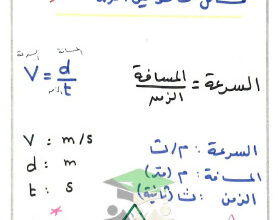 السرعة
المسافة
V = d / t
الزمن
السرعة = المسافة / الزمن
V : m/s
السرعة : م/ث
d : m
المسافة : م (متر)
t : s
الزمن : ث (ثانية)